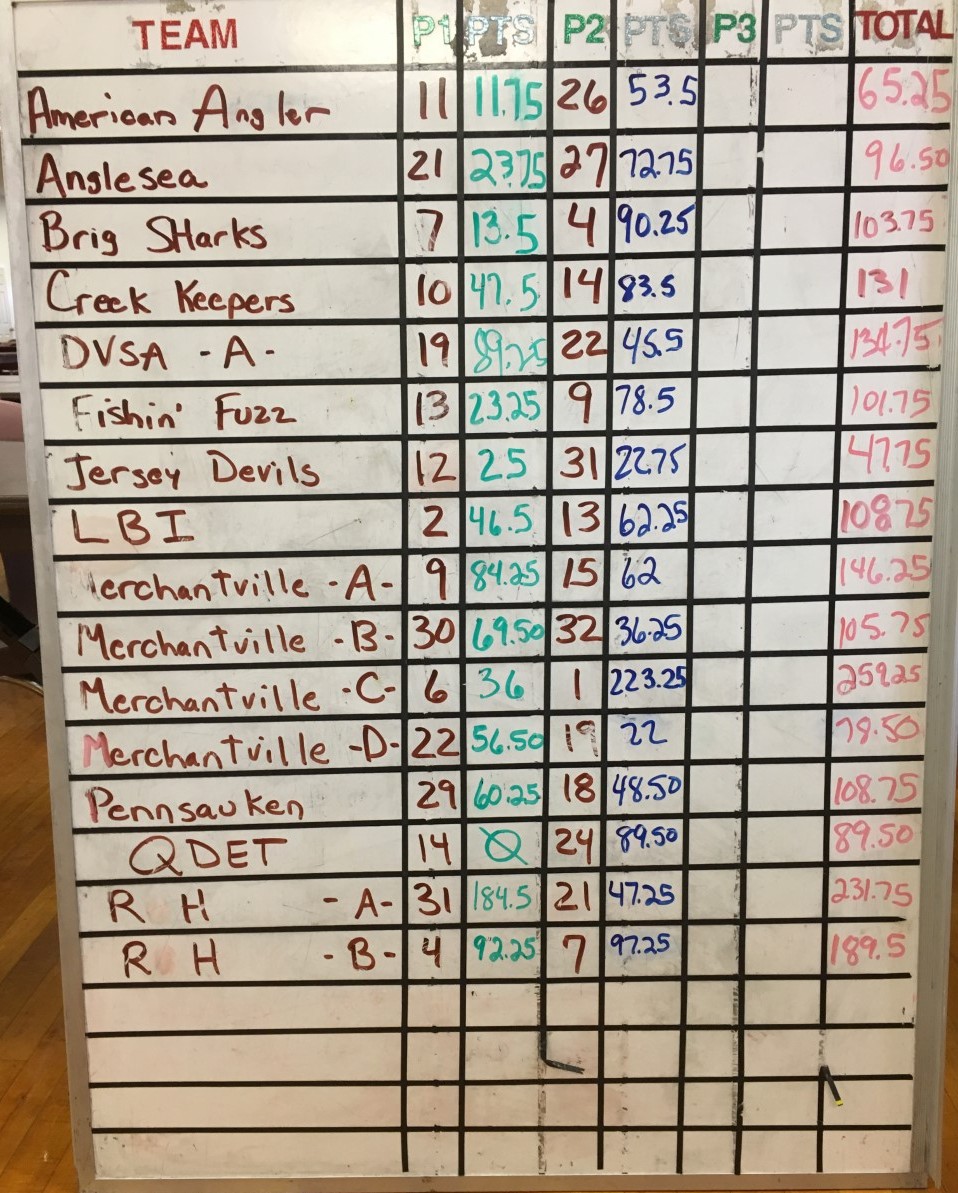 TEAM P1 PTS P2 PTS P3 PTS TOTAL
American Angler 11 11.75 26 53.5 65.25
Anglesea 21 23.75 27 72.75 96.50
Brig SHarks 7 13.5 4 90.25 103.75
Creek Keepers 10 47.5 14 83.5 131
DVSA -A- 19 89.25 22 45.5 134.75
Fishin' Fuzz 13 23.25 9 78.5 101.75
Jersey Devils 12 25 31 22.75 47.75
LBI 2 46.5 13 62.25 108.75
Merchantville -A- 9 84.25 15 62 146.25
Merchantville -B- 30 69.50 32 36.25 105.75
Merchantville -C- 6 36 1 223.25 259.25
Merchantville -D- 22 56.50 19 22 78.50
Pennsauken 29 60.25 18 48.50 108.75
QDET 14 0 24 89.50 89.50
R H -A- 31 184.5 21 47.25 231.75
R H -B- 4 92.25 7 97.25 189.5